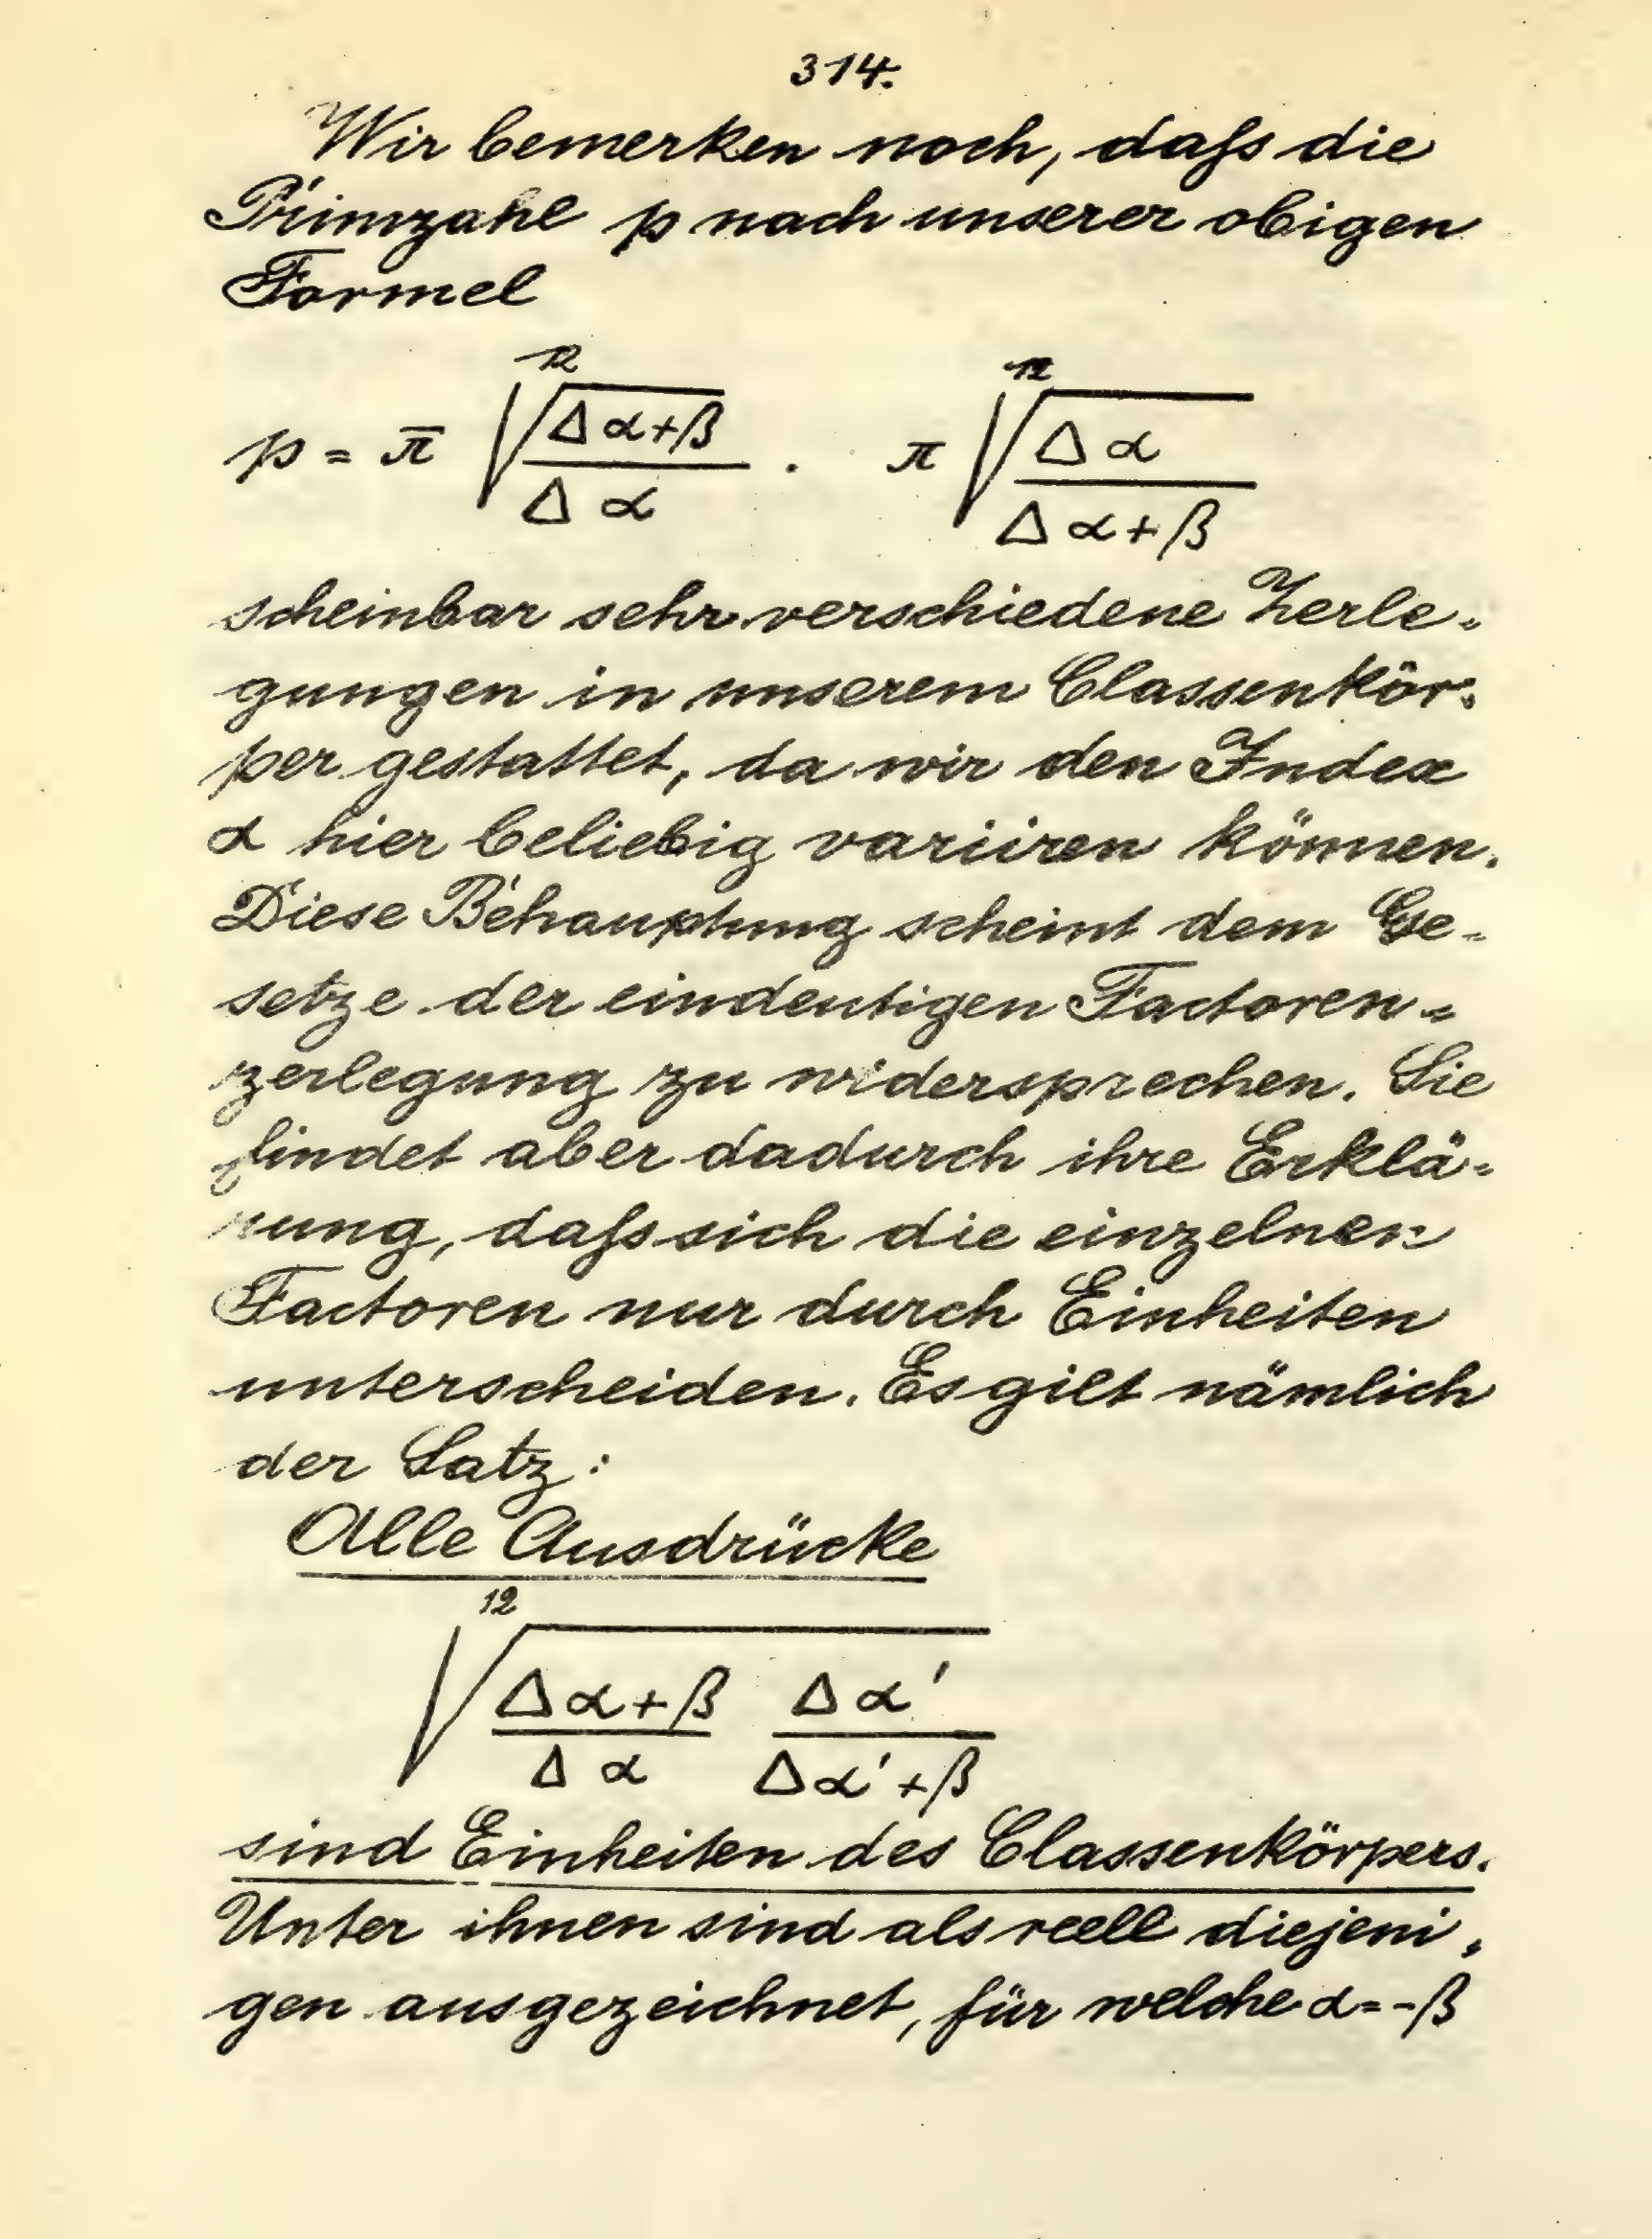 314.
Wir bemerken noch, daſs die
Primzahl p nach unserer obigen
Formel
p = π \sqrt[12]{\frac{Δ α+β}{Δ α}} . π \sqrt[12]{\frac{Δ α}{Δ α+β}}
scheinbar sehr verschiedene Zerle-
gungen in unserem Classenkör-
per gestattet, da wir den Index
α hier beliebig variiren können.
Diese Behauptung scheint dem Ge-
setze der eindeutigen Factoren-
zerlegung zu widersprechen. Sie
findet aber dadurch ihre Erklä-
rung, daſs sich die einzelnen
Factoren nur durch Einheiten
unterscheiden. Es gilt nämlich
der Satz:
Alle Ausdrücke
\sqrt[12]{\frac{Δ α+β}{Δ α} \frac{Δ α'}{Δ α'+β}}
sind Einheiten des Classenkörpers.
Unter ihnen sind als reell diejeni-
gen ausgezeichnet, für welche α=-β